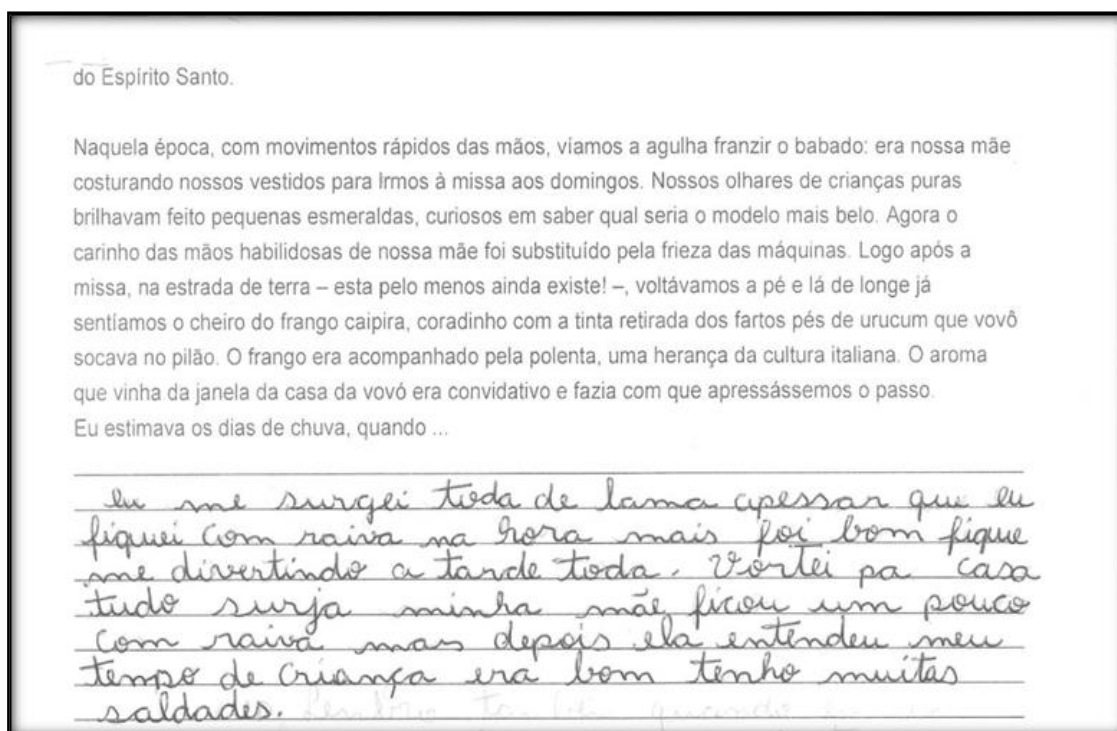 do Espírito Santo.
Naquela época, com movimentos rápidos das mãos, víamos a agulha franzir o babado: era nossa mãe
costurando nossos vestidos para Irmos à missa aos domingos. Nossos olhares de crianças puras
brilhavam feito pequenas esmeraldas, curiosos em saber qual seria o modelo mais belo. Agora o
carinho das mãos habilidosas de nossa mãe foi substituído pela frieza das máquinas. Logo após a
missa, na estrada de terra – esta pelo menos ainda existe! –, voltávamos a pé e lá de longe já
sentíamos o cheiro do frango caipira, coradinho com a tinta retirada dos fartos pés de urucum que vovô
socava no pilão. O frango era acompanhado pela polenta, uma herança da cultura italiana. O aroma
que vinha da janela da casa da vovó era convidativo e fazia com que apressássemos o passo.
Eu estimava os dias de chuva, quando ...
eu me surgei toda de lama apessar que eu
fiquei com raiva na hora mais foi bom fique
me divertindo a tarde toda. Vortei pa casa
tudo surja minha mãe ficou um pouco
com raiva mas depois ela entendeu meu
tempo de criança era bom tenho muitas
saldades.